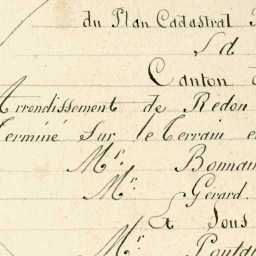 du Plan Cadastral
d
Canton
Arrondissement de Redon
Terminé Sur le Terrain
Mr. Bonnai
Mr. Gerard.
Et Sous
Mr.